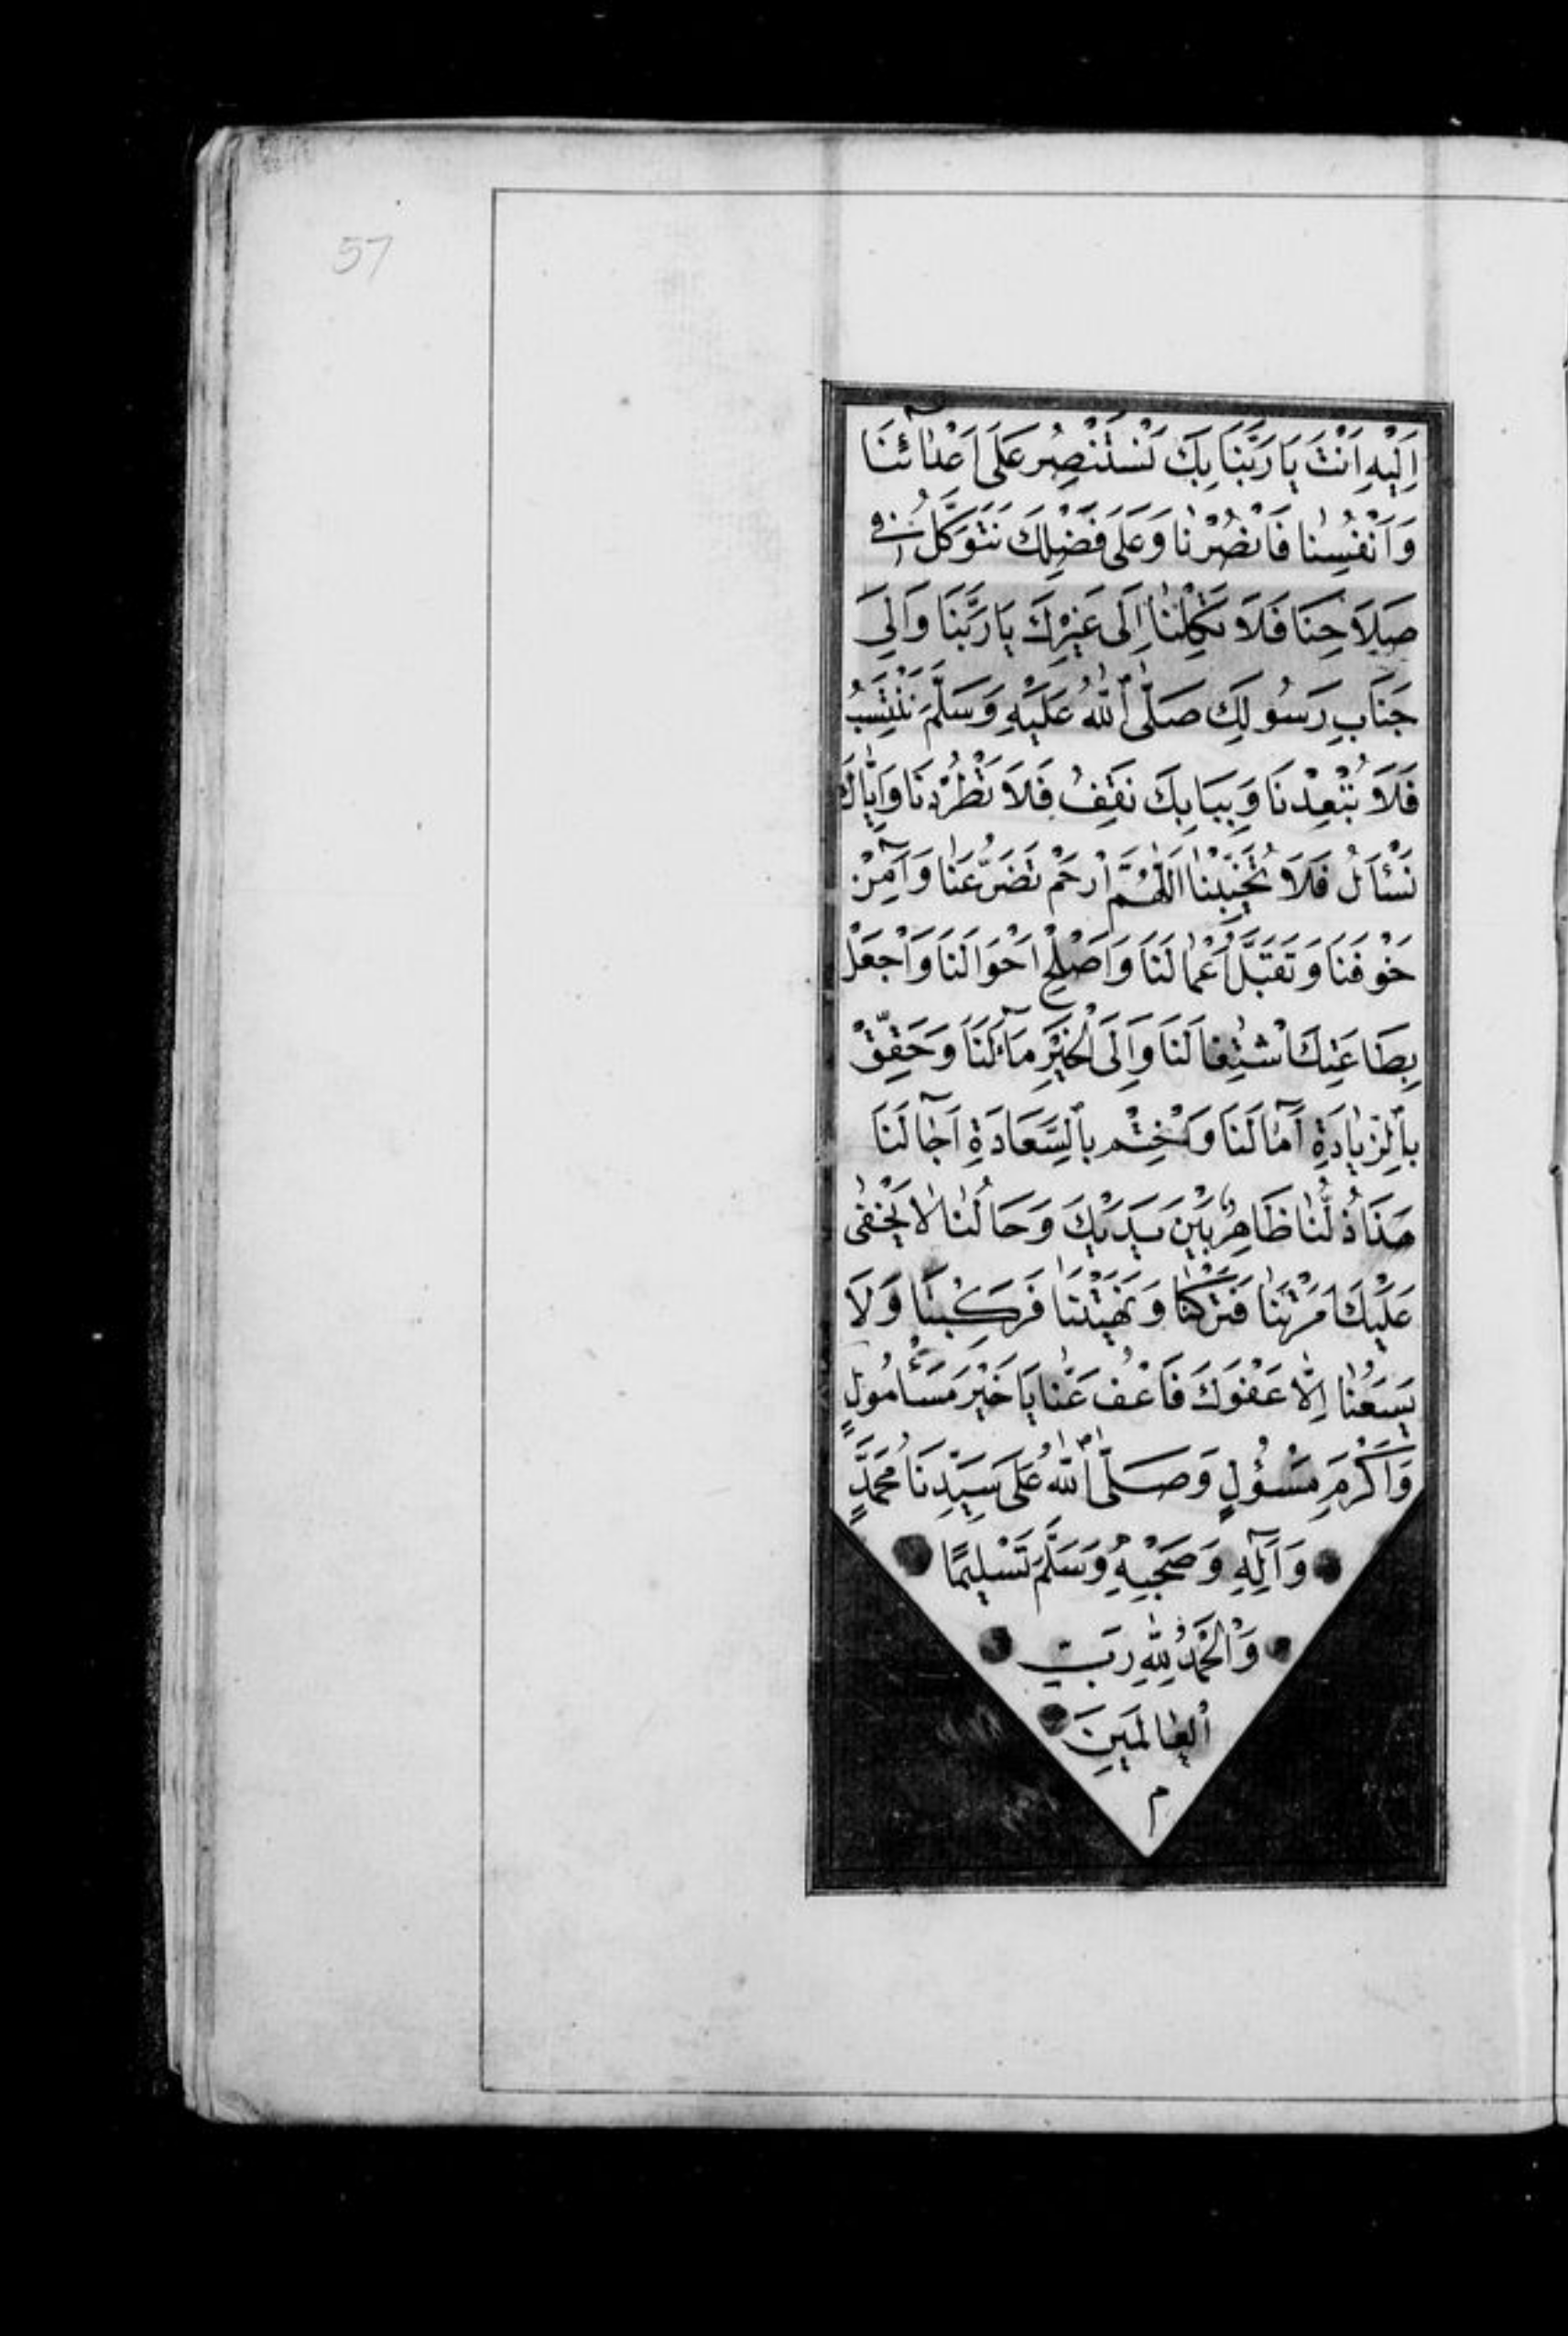 57
اِلَيْهِ اَنْتَ يَا رَبَّنَا بِكَ نَسْتَنْصِرُ عَلَى اَعْدَائِنَا
وَاَنْفُسِنَا فَانْصُرْنَا وَعَلَى فَضْلِكَ نَتَوَكَّلُ فى
صَلَاحِنَا فَلَا تَكِلْنَا اِلَى غَيْرِكَ يَا رَبَّنَا وَالِىَ
جَنَابِ رَسُولِكَ صَلَّى اللّٰهُ عَلَيْهِ وَسَلَّمَ نَنْتَسِبُ
فَلَا تُبْعِدْنَا وَبِبَابِكَ نَقِفُ فَلَا تَطْرُدْنَا وَاِيَّاكَ
نَسْئَاَلُ فَلَا تُخَيِّبْنَا اَللّٰهُمَّ ارْحَمْ تَضَرُّعَنَا وَآمِنْ
خَوْفَنَا وَتَقَبَّلْ اَعْمَالَنَا وَاَصْلِحْ اَحْوَالَنَا وَاجْعَلْ
بِطَاعَتِكَ اشْتِغَالَنَا وَاِلَى الْخَيْرِ مَآلَنَا وَحَقِّقْ
بِالزِّيَادَةِ آمَالَنَا وَاخْتِمْ بِالسَّعَادَةِ آجَالَنَا
هَذَا ذُلُّنَا ظَاهِرٌ بَيْنَ يَدَيْكَ وَحَالُنَا لَا يَخْفٰى
عَلَيْكَ اَمَرْتَنَا فَتَرَكْنَا وَنَهَيْتَنَا فَرَكِبْنَا وَلَا
يَسَعُنَا اِلَّا عَفْوُكَ فَاعْفُ عَنَّا يَا خَيْرَ مَأْمُولٍ
وَاَكْرَمَ مَسْؤُلٍ وَصَلَّى اللّٰهُ عَلَى سَيِّدِنَا مُحَمَّدٍ
وَآلِهِ وَصَحْبِهِ وَسَلَّمَ تَسْلِيمًا
وَالْحَمْدُ لِلّٰهِ رَبِّ
الْعَالَمِينَ
م